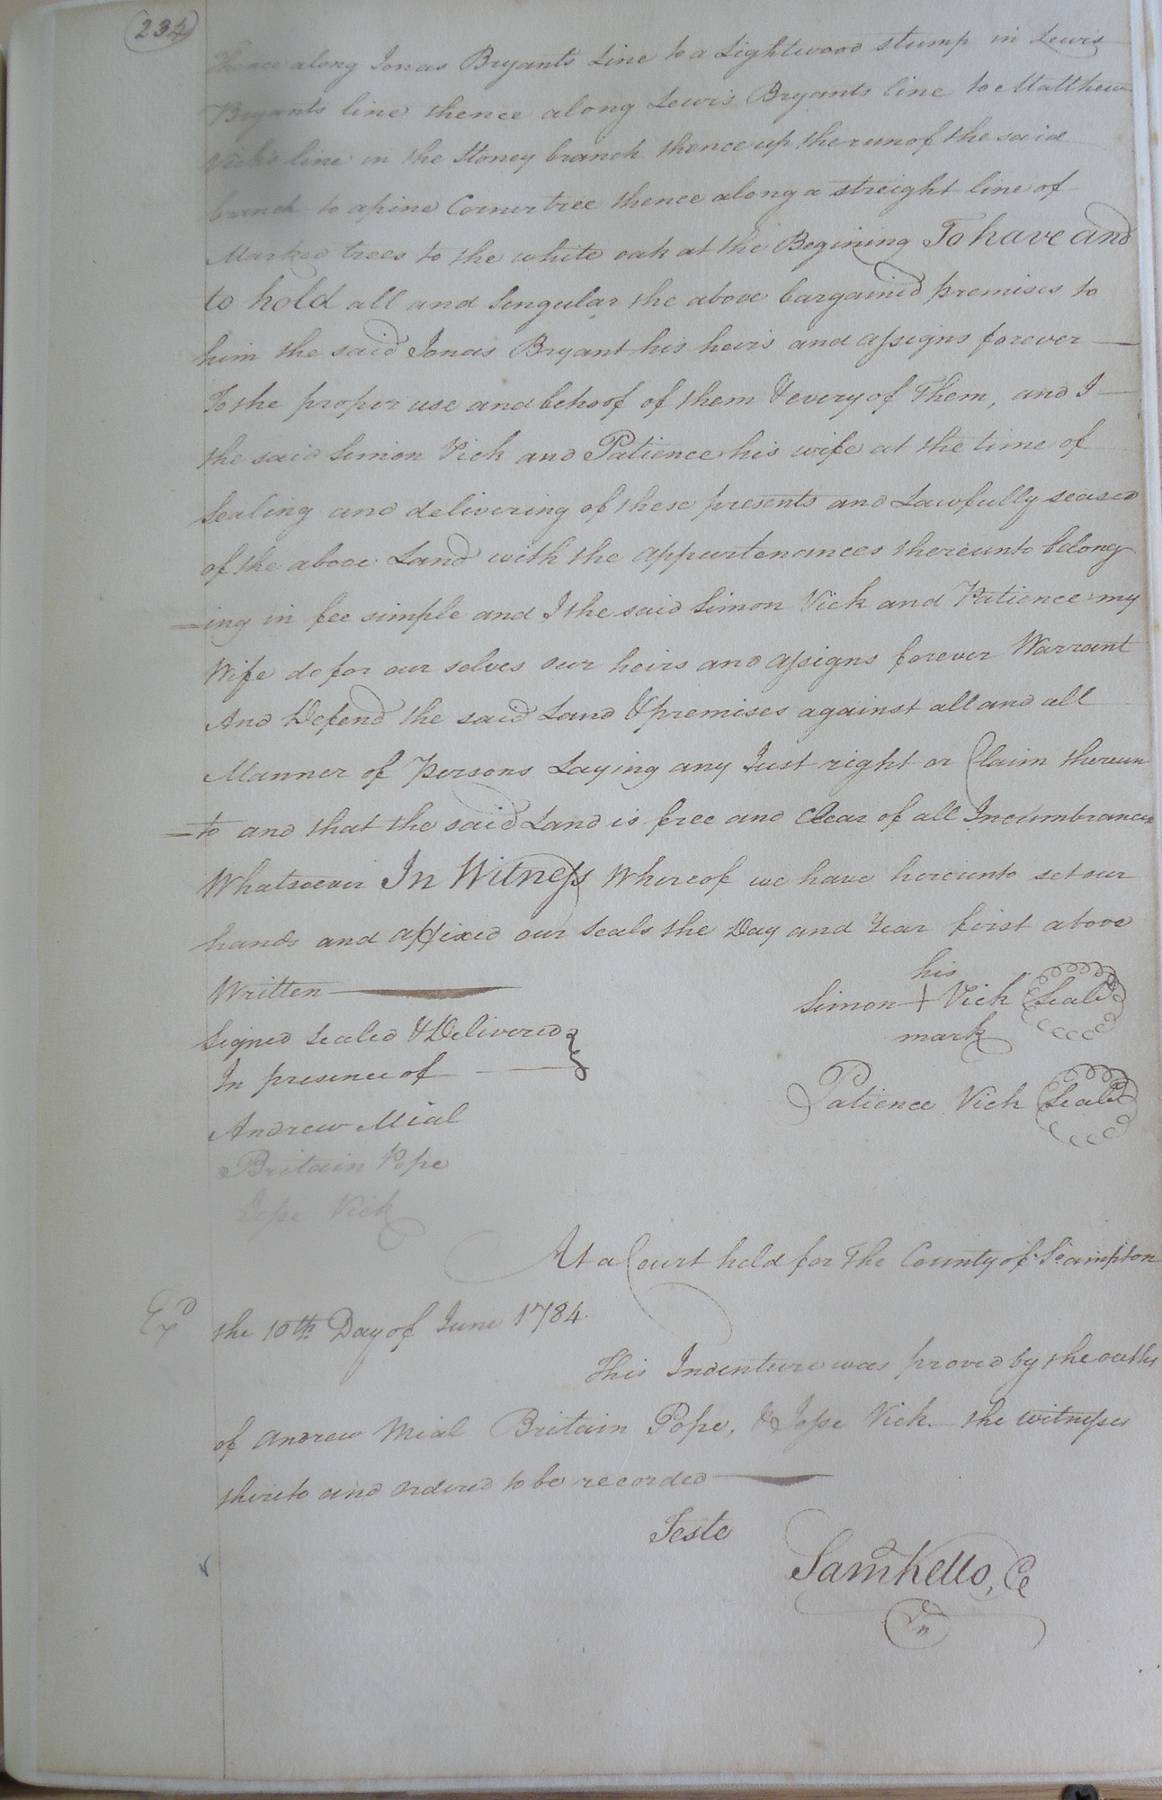 234
Thence along Jonas Bryants Line to a Lightwood stump in Lewis
Bryants line thence along Lewis Bryants line to Matthew
Vicks line in the Stoney branch thence up the run of the said
branch to a pine Corner tree thence along a streight line of
Marked trees to the white oak at the Begining To have and
to hold all and Singular the above bargained premises to
him the said Jonas Bryant his heirs and assigns forever
To the proper use and behoof of them & every of Them, and I
the said Simon Vick and Patience his wife at the time of
Sealing and delivering of these presents and Lawfully seased
of the above Land with the appurtenances thereunto belong
=ing in fee simple and I the said Simon Vick and Patience my
Wife do for our selves our heirs and assigns forever Warrant
And Defend the said Land & premises against all and all
Manner of Persons Laying any Just right or Claim thereun
=to and that the said Land is free and Clear of all Incumbrances
Whatsoever In Witness Whereof we have hereunto set our
hands and affixed our Seals the Day and Year first above
Written
his
Simon + Vick Seal
mark
Signed Sealed & Delivered
In presence of
Patience Vick Seal
Andrew Mial
Britain Pope
Jesse Vick
At a Court held for The County of Soampton
Exd the 10th Day of June 1784.
This Indenture was proved by the oaths
of Andrew Mial Britain Pope, & Jesse Vick the witnesses
thereto and ordered to be recorded
Teste
Saml Kello, C